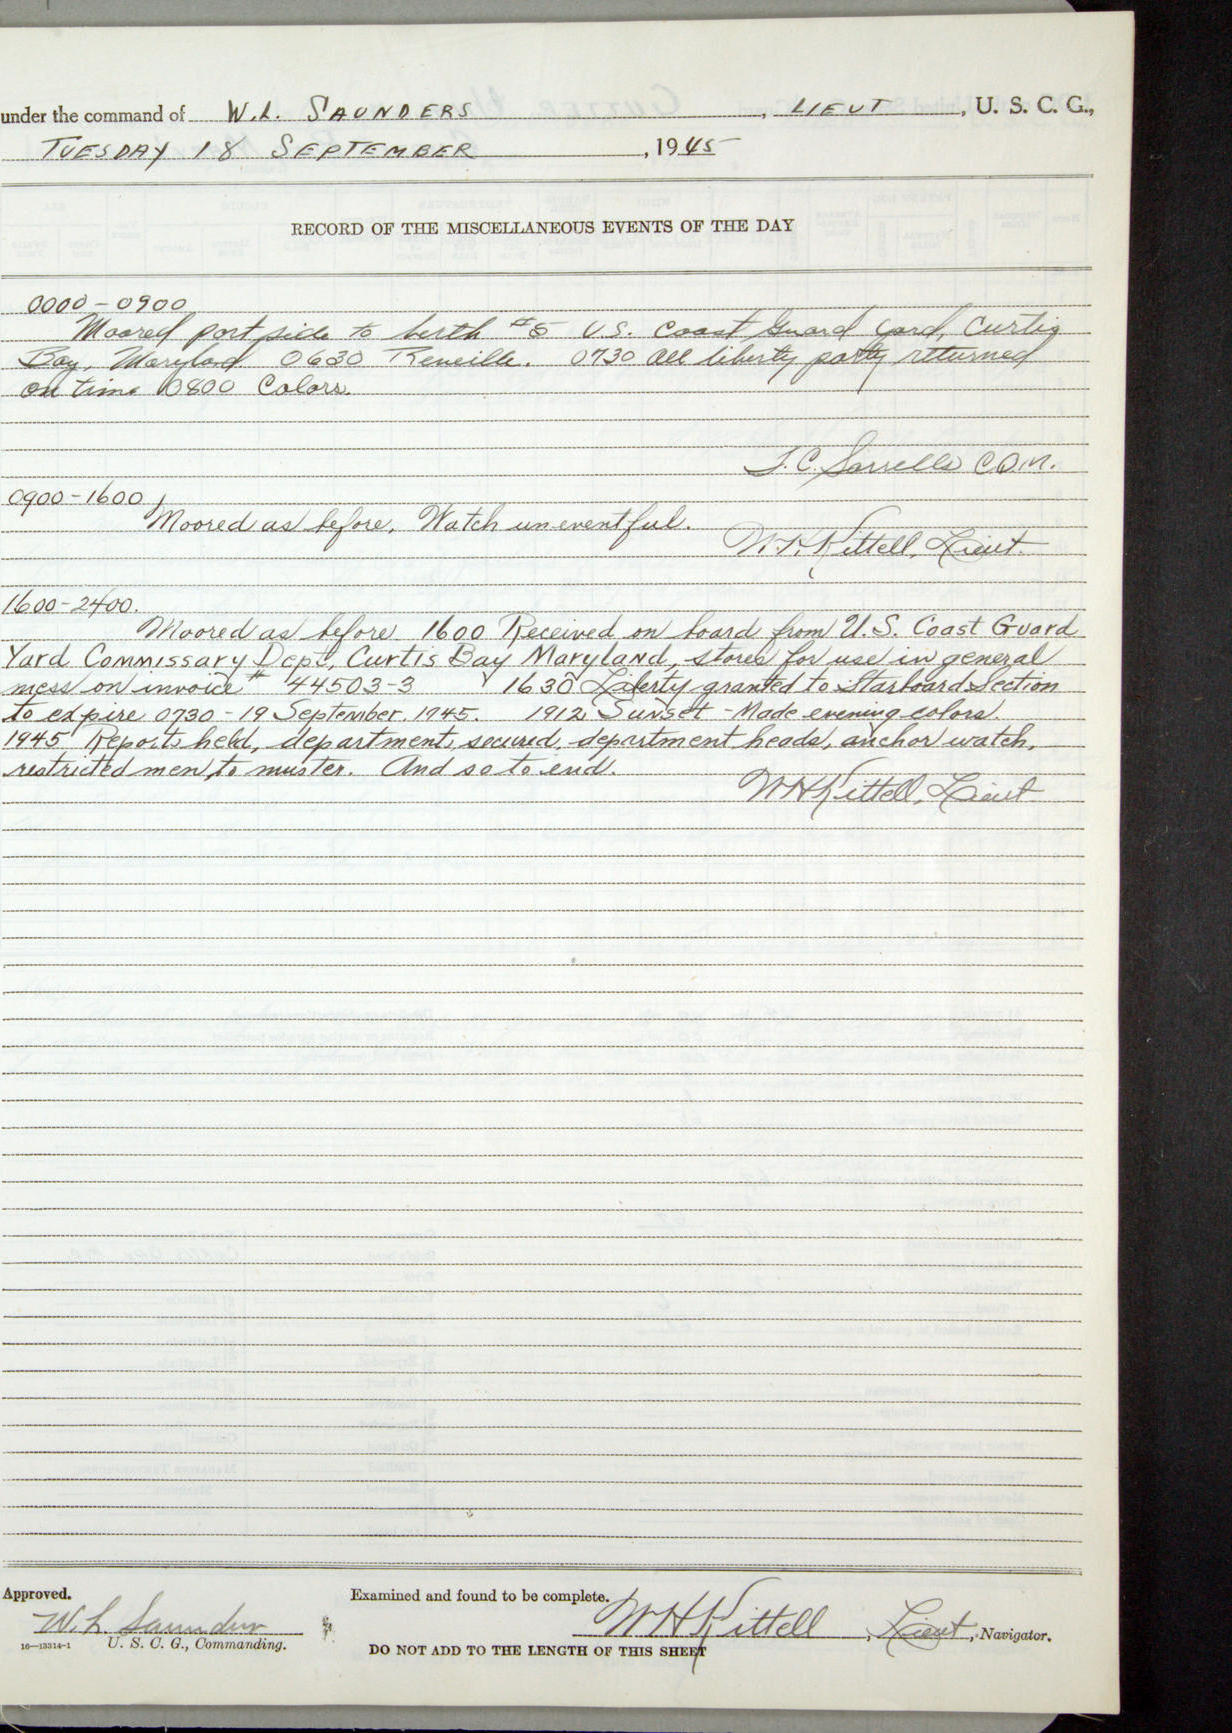 under the command of W. L. SAUNDERS, LIEUT, U. S. C. G.,
TUESDAY 18 SEPTEMBER, 1945
RECORD OF THE MISCELLANEOUS EVENTS OF THE DAY
0000-0900
Moored port side to berth #5 U.S. Coast Guard Yard, Curtis
Bay, Maryland. 0630 Reveille. 0730 All liberty party returned
on time 0800 Colors.
Sorrells
0900-1600
Moored as before, Watch uneventful.
W.H. Kittell, Lieut.
1600-2400.
Moored as before 1600 Received on board from U.S. Coast Guard
Yard Commissary Dept, Curtis Bay Maryland, stores for use in general
mess on invoice # 44503-3 1630 Liberty granted to Starboard Section
to expire 0730-19 September. 1945. 1912 Sunset - Made evening colors.
1945 Reports held, departments secured, department heads, anchor watch,
restricted men, to muster. And so to end.
W H Kittell, Lieut
Approved. Examined and found to be complete.
W. L. Saunders W H Kittell, Lieut, Navigator.
16-13314-1 U. S. C. G., Commanding.
DO NOT ADD TO THE LENGTH OF THIS SHEET